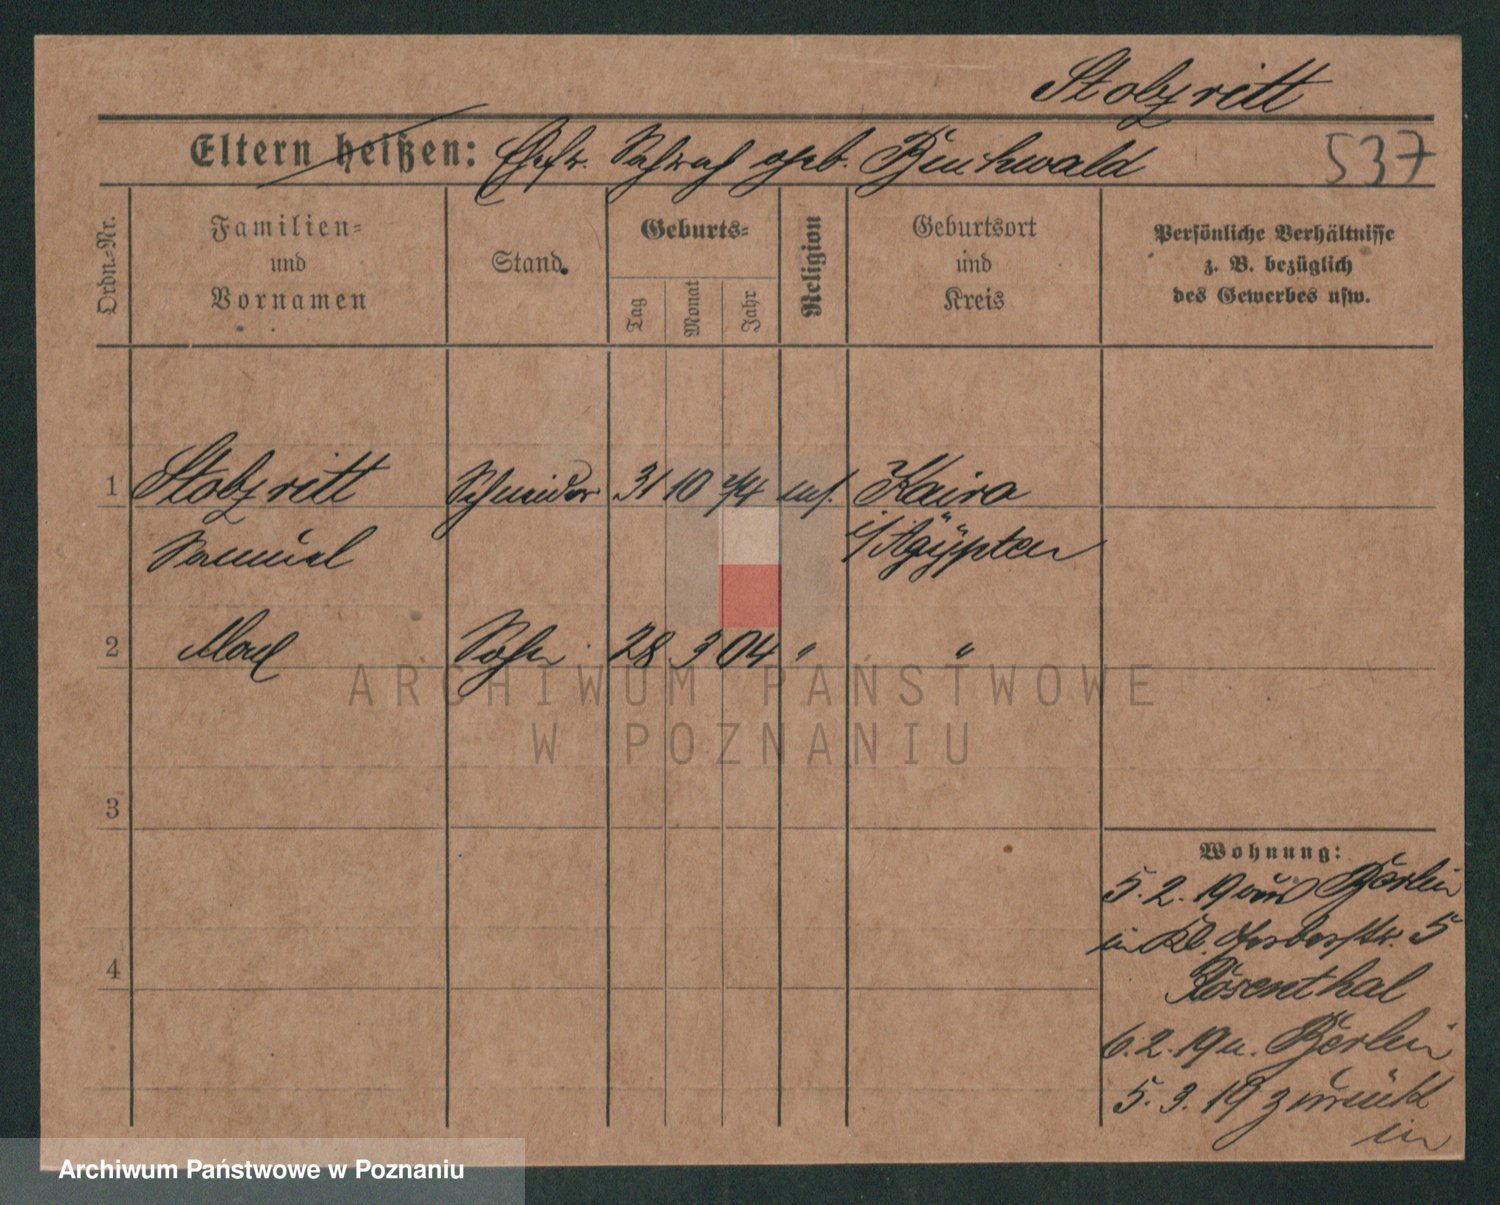 Stolzritt
Eltern heißen: Ehefr. geb. Buchwald
537
Ordn.-Nr.
Familien- und Vornamen
Stand.
Geburts-
Tag
Monat
Jahr
Religion
Geburtsort und Kreis
Persönliche Verhältnisse
z. B. bezüglich
des Gewerbes usw.
1 Stolzritt Schneider 31 10 74 Kairo
Samuel i/Ägypten
2 Sohn 28 3 04 " "
3
4
Wohnung:
5. 2. 19 von Berlin
in Kl. Gerberstr. 5
Rosenthal
6. 2. 19 n. Berlin
5. 3. 19 zurück
in
ARCHIWUM PAŃSTWOWE
W POZNANIU
Archiwum Państwowe w Poznaniu